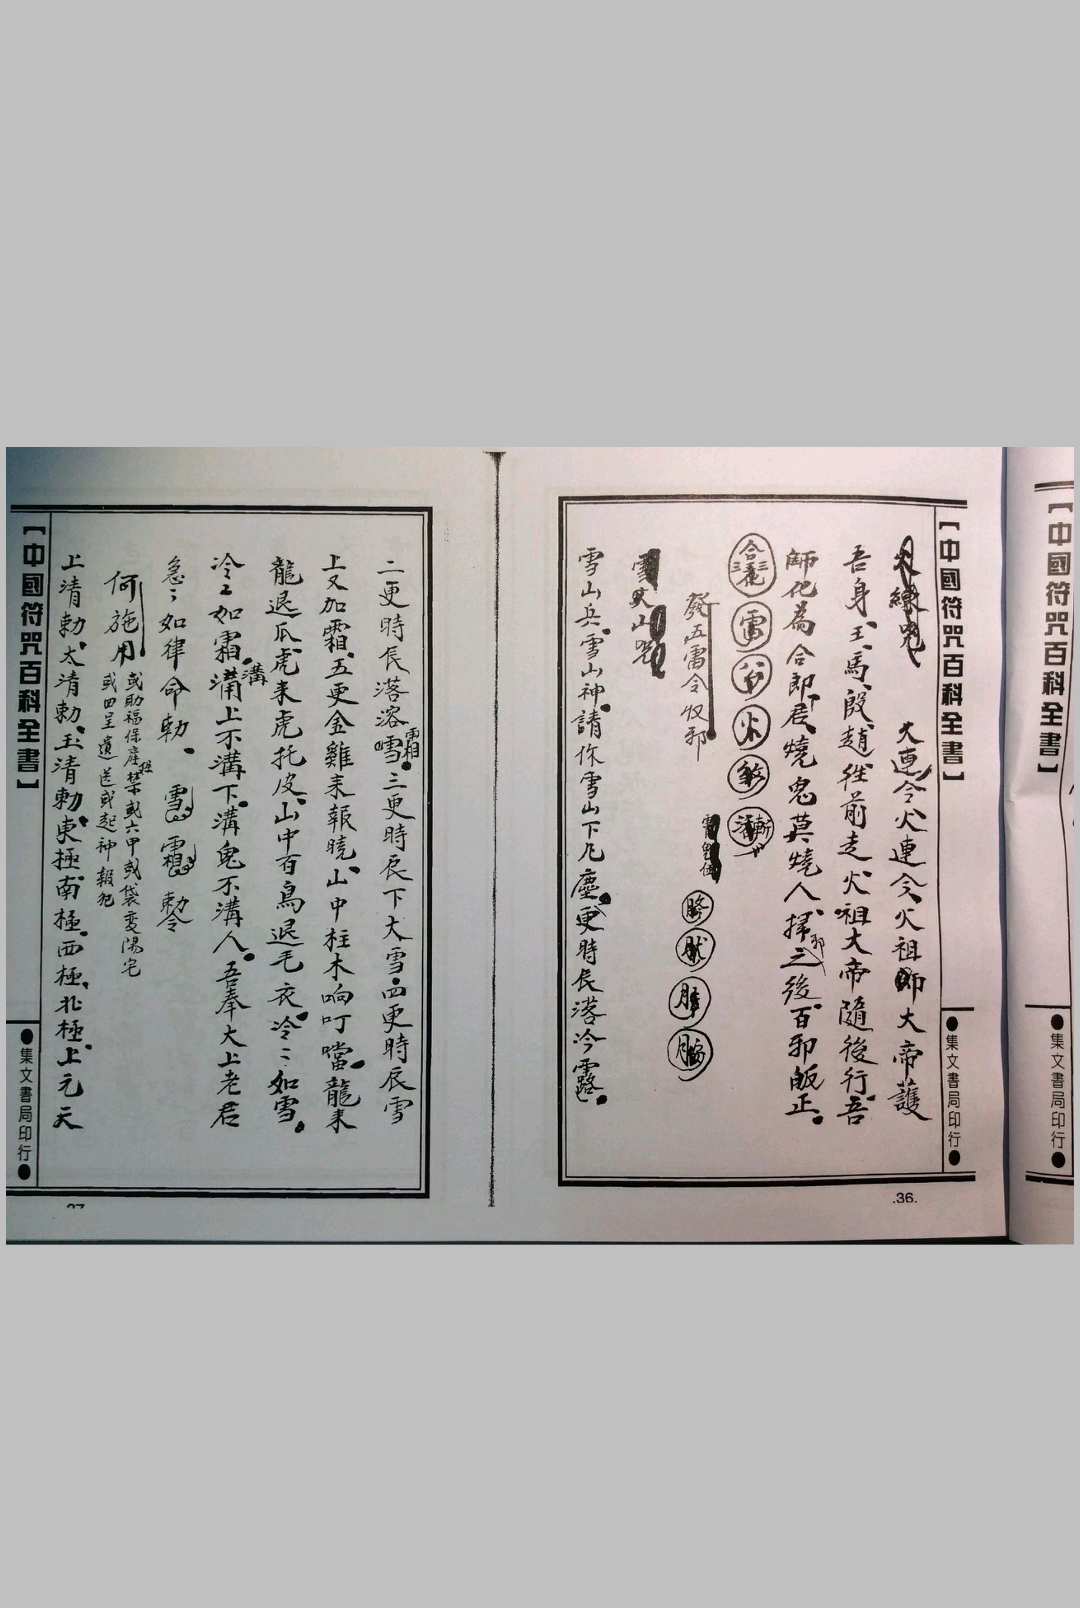 【中國符咒百科全書】
●集文書局印行●
【中國符咒百科全書】
●集文書局印行●
火練咒
火連令火連令火祖師大帝護
吾身、王、馬、殷、趙、往前走、火祖大帝隨後行、吾
師化為合即君、燒鬼莫燒人、掃邪之後、百邪皈正。
合 雷 火
發五雷令收邪
雪山咒
雪山兵、雪山神、請你雪山下凡塵、更時長落冷露。
.36.
二更時長落溶霜雪。三更時辰下大雪。四更時辰雪
上又加霜、五更金雞來報曉、山中柱木响叮噹。龍來
龍退瓜、虎來虎托皮、山中百鳥退毛衣、冷冷如雪。
冷冷如霜。溝上不溝下。溝鬼不溝人。吾奉太上老君
急急如律命勅。 雪 霜 勅令
何施用
或助福保產 禁或六甲或袋变陽宅
或四呈遺送或起神報犯
上清勅、太清勅、玉清勅、東極、南極、西極、北極、上元天
【中國符咒百科全書】
●集文書局印行●